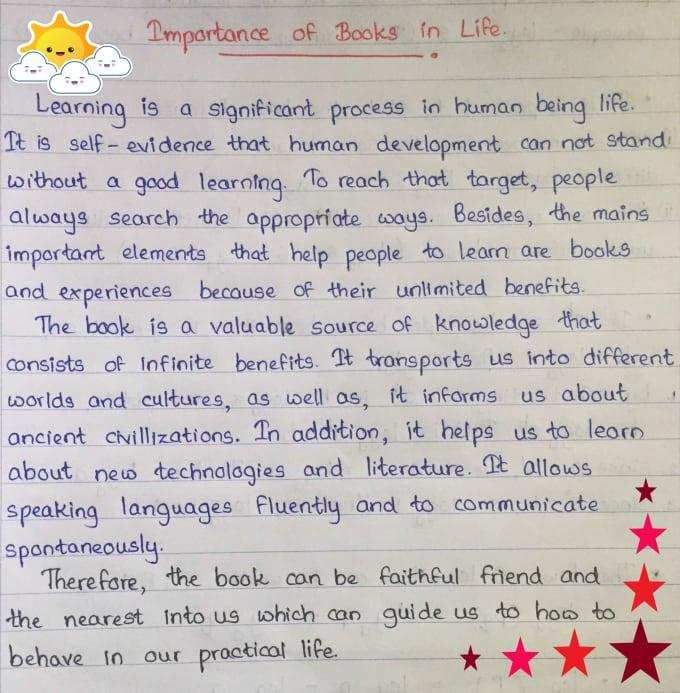 Importance of Books in Life.
Learning is a significant process in human being life.
It is self-evidence that human development can not stand
without a good learning. To reach that target, people
always search the appropriate ways. Besides, the mains
important elements that help people to learn are books
and experiences because of their unlimited benefits.
The book is a valuable source of knowledge that
consists of infinite benefits. It transports us into different
worlds and cultures, as well as, it informs us about
ancient civillizations. In addition, it helps us to learn
about new technologies and literature. It allows
speaking languages fluently and to communicate
spontaneously.
Therefore, the book can be faithful friend and
the nearest into us which can guide us to how to
behave in our practical life.